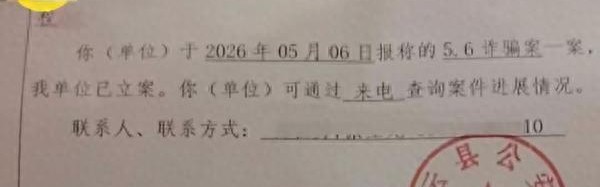 你（单位）于 2026 年 05 月 06 日报称的 5.6 诈骗案一案，
我单位已立案。你（单位）可通过 来电 查询案件进展情况。
联系人、联系方式： 10
县公